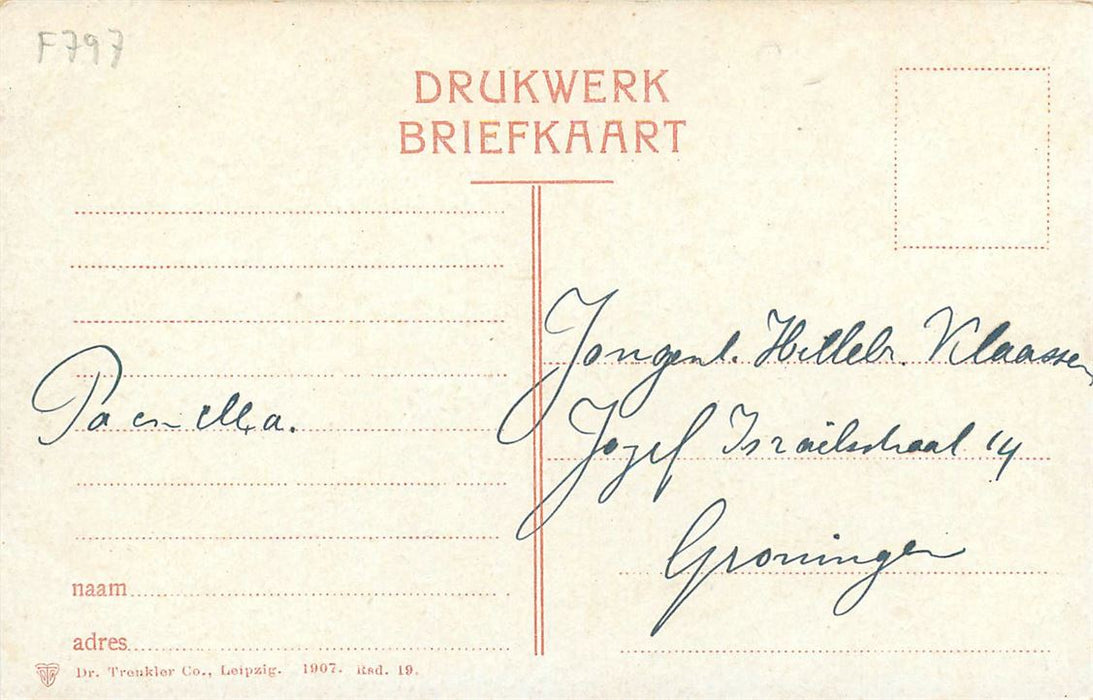 F797
DRUKWERK
BRIEFKAART
Pa en Ma.
Jongenh. Hillebr. Klaassen
Jozef Israëlstraat 14
Groningen
naam
adres
Dr. Trenkler Co., Leipzig. 1907. Rsd. 19.